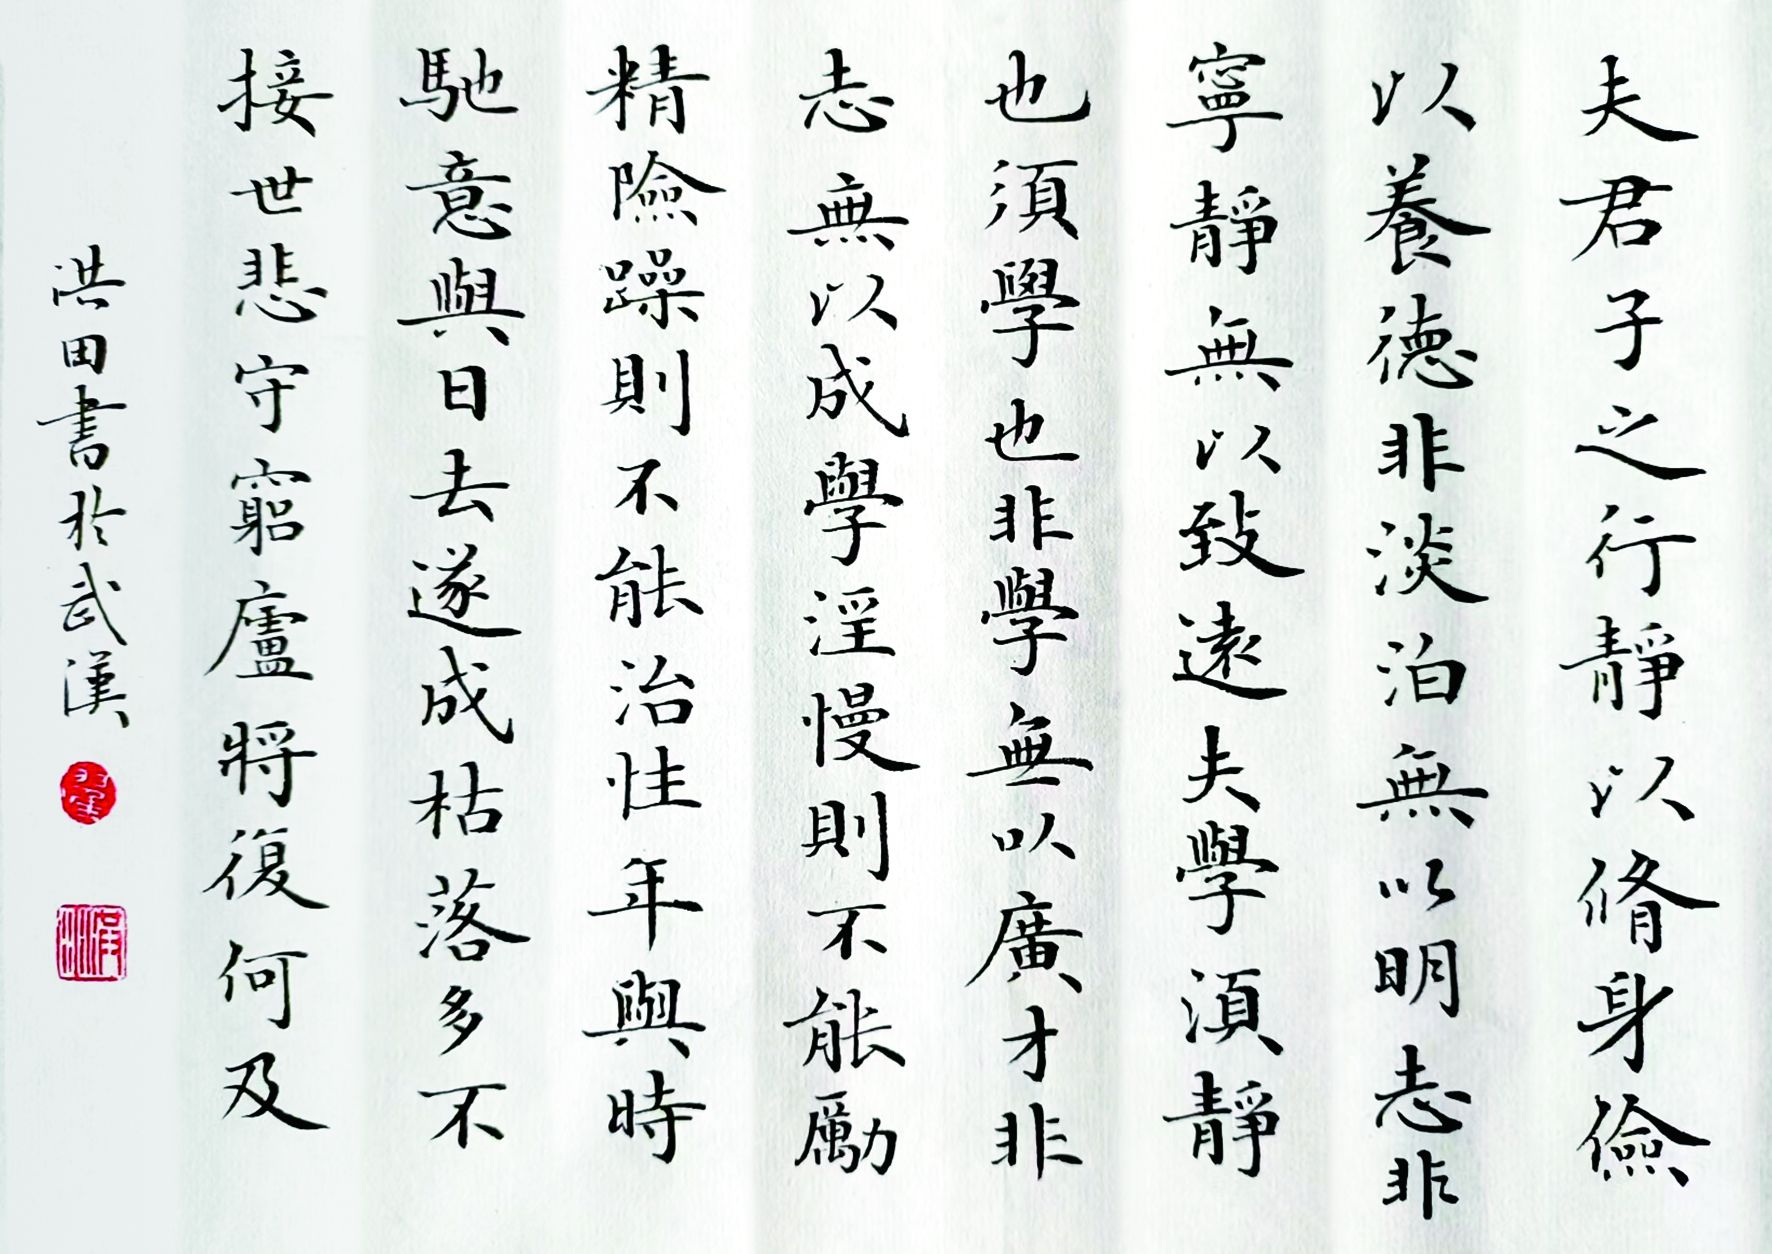 夫君子之行靜以脩身儉
以養德非淡泊無以明志非
寧靜無以致遠夫學須靜
也須學也非學無以廣才非
志無以成學淫慢則不能勵
精險躁則不能治性年與時
馳意與日去遂成枯落多不
接世悲守窮廬將復何及
洪田書於武漢